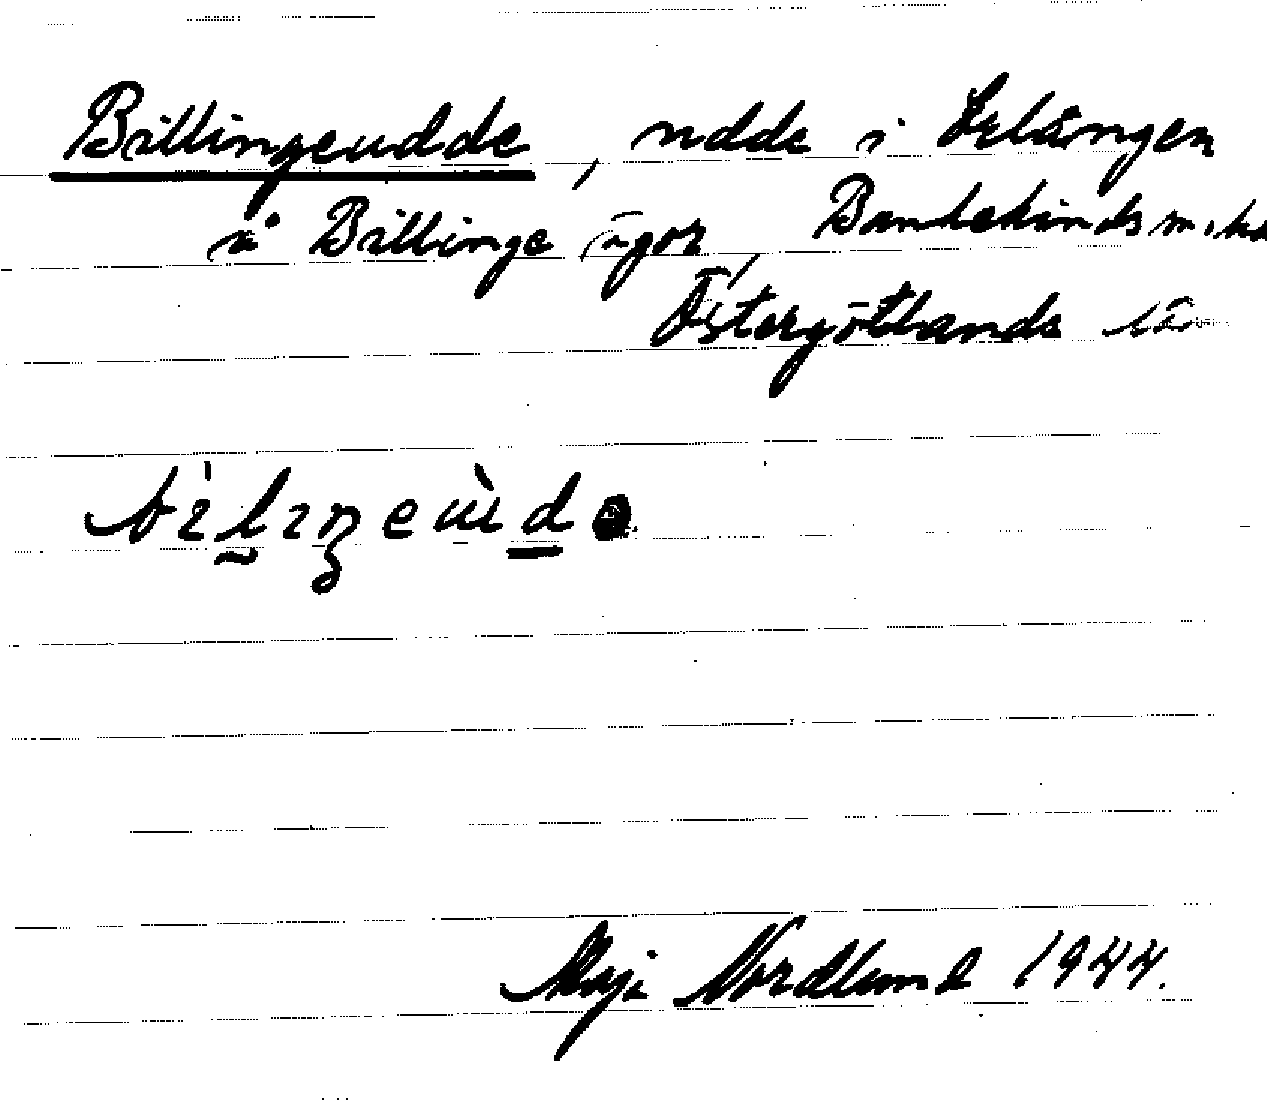 Billingeudde, udde i Erlången
på Billinge ägor, Bankekinds m. hd
Östergötlands län
Maji Nordlund 1944.